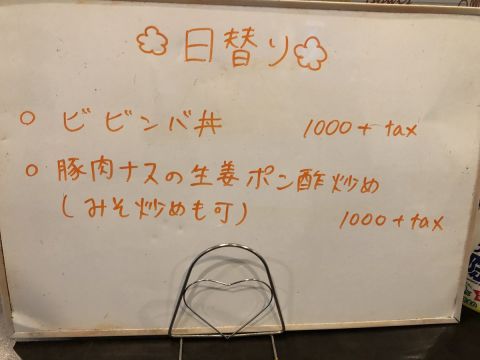 日替り
○ ビビンバ丼 1000+tax
○ 豚肉ナスの生姜ポン酢炒め
(みそ炒めも可) 1000+tax